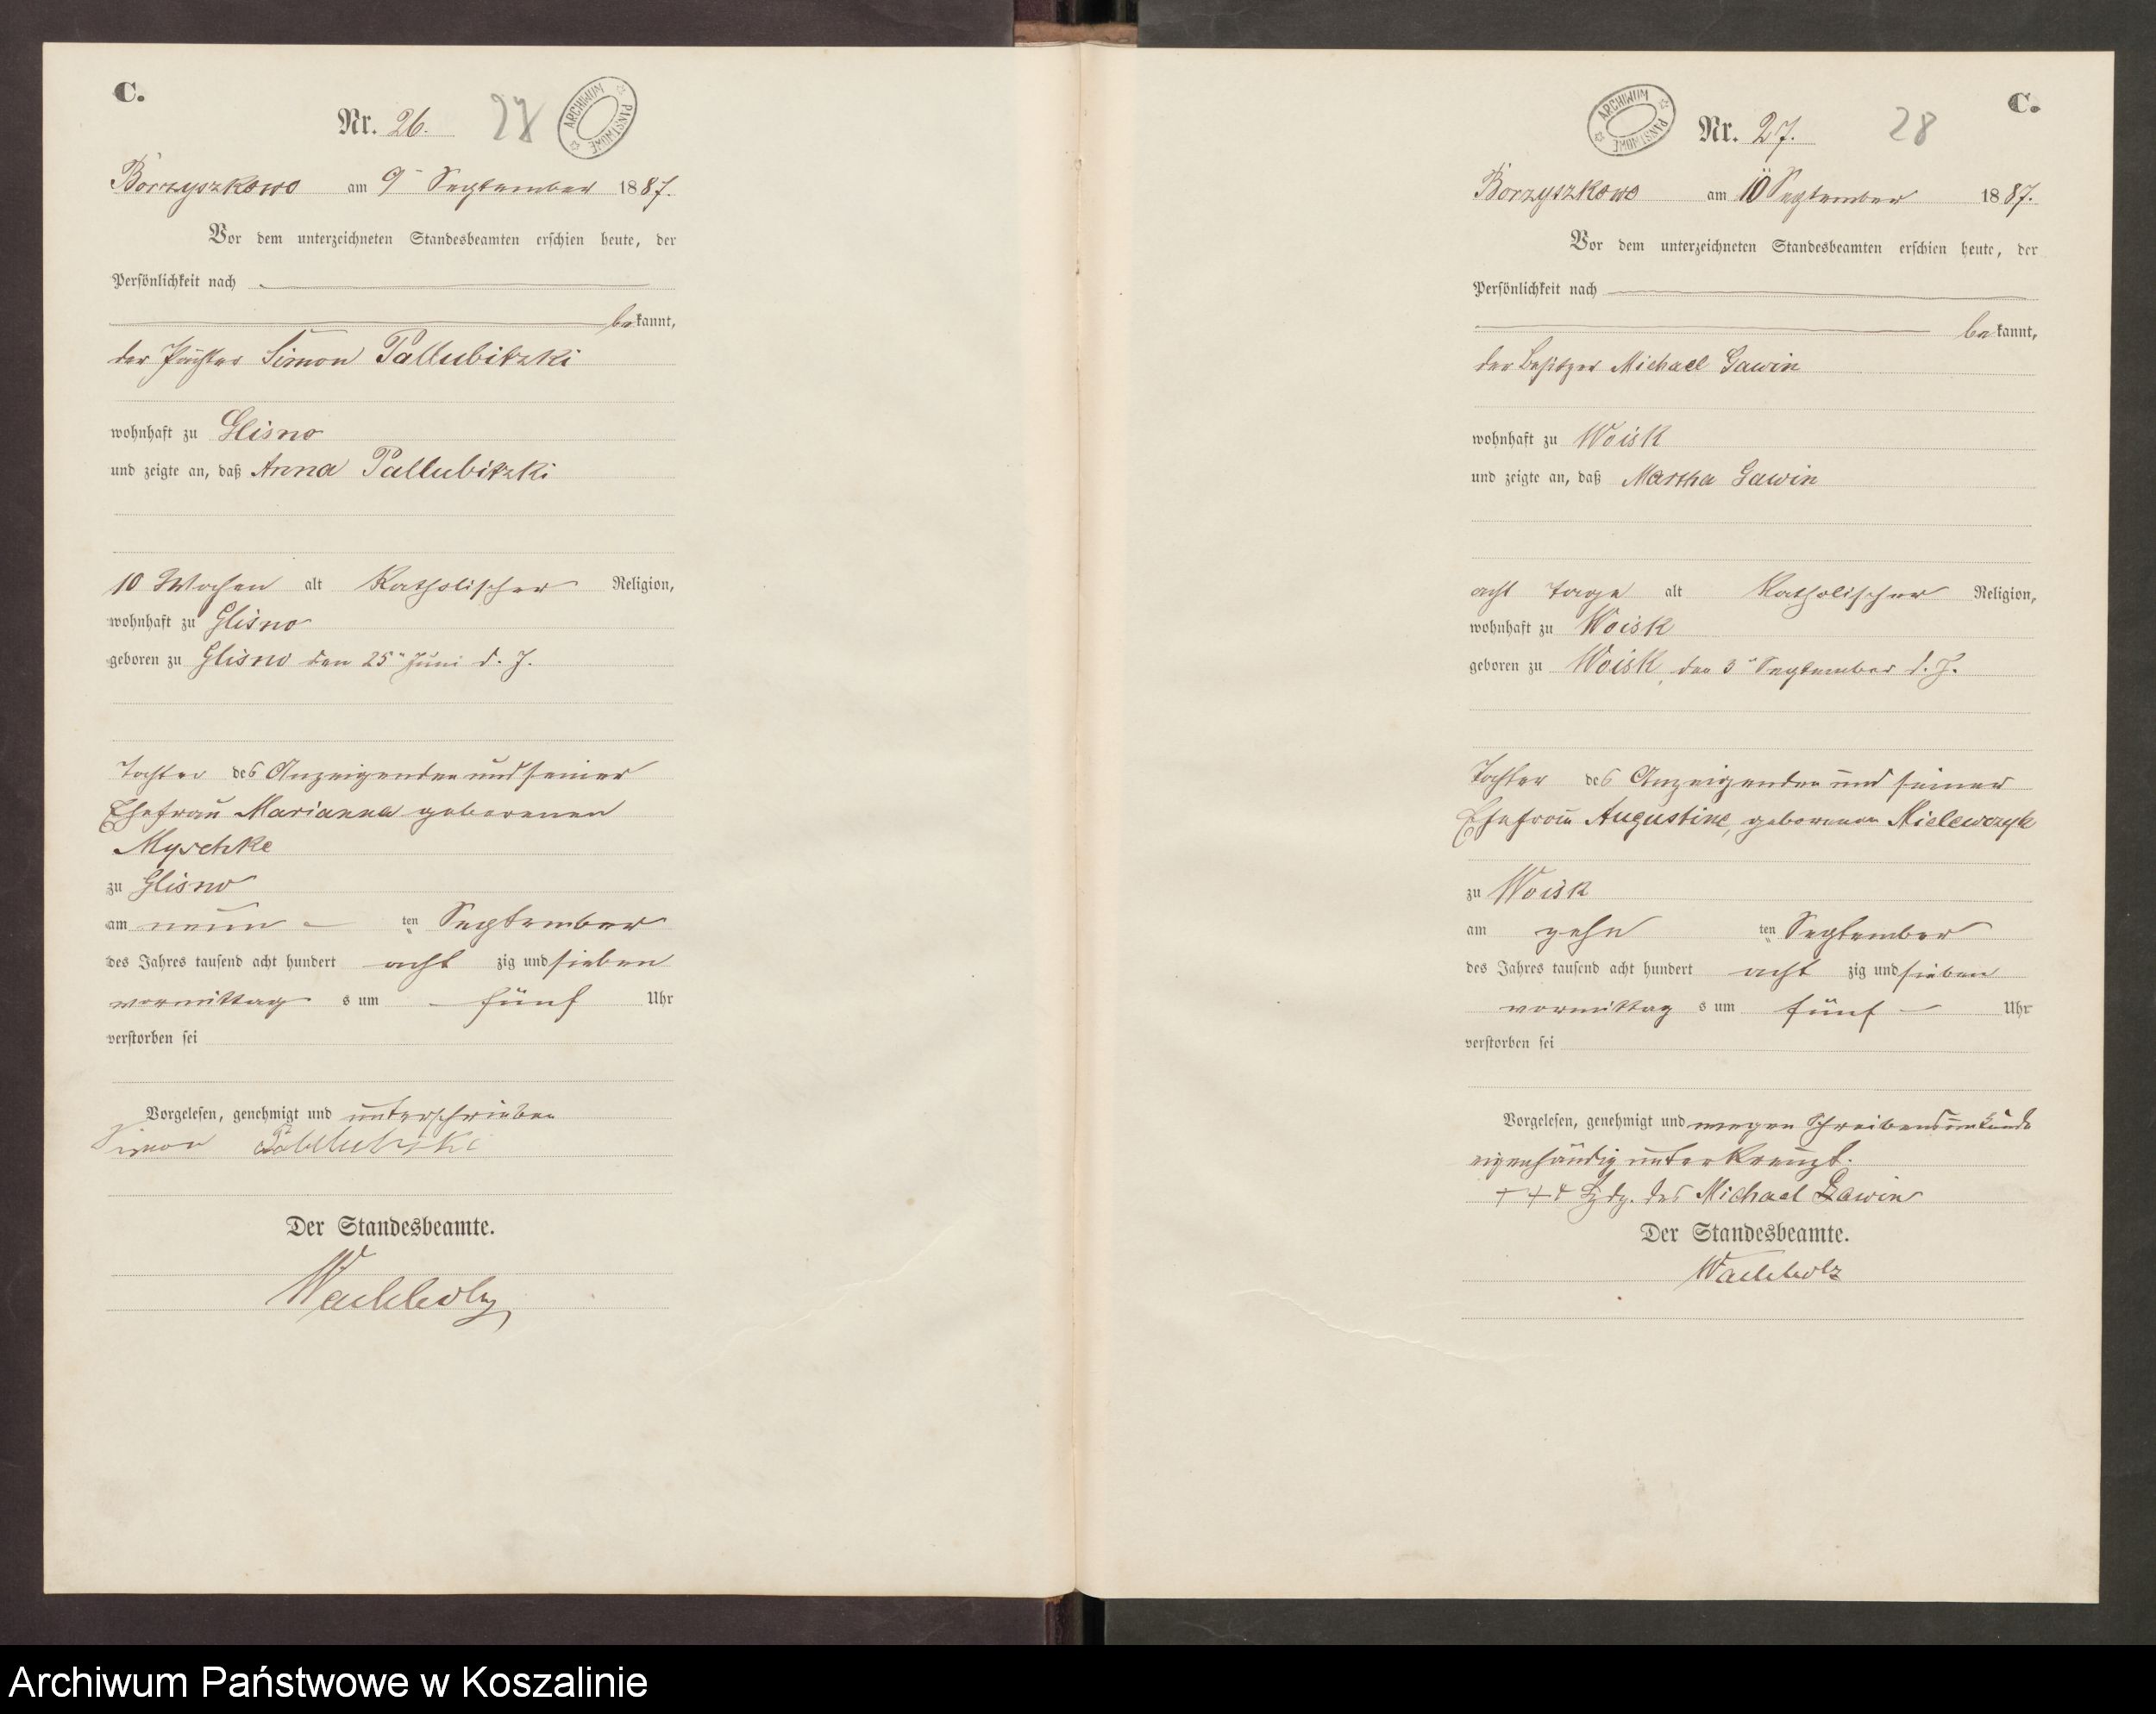 C.
Nr. 26.
27
ARCHIWUM PAŃSTWOWE
Borzyszkowo am 9ten September 1887.
Vor dem unterzeichneten Standesbeamten erschien heute, der
Persönlichkeit nach
bekannt,
der Pächter Simon Pallubitzki
wohnhaft zu Glisno
und zeigte an, daß Anna Pallubitzki
10 Wochen alt Katholischer Religion,
wohnhaft zu Glisno
geboren zu Glisno den 25ten Juni d. J.
Tochter des Anzeigenden und seiner
Ehefrau Marianna geborenen
Myschke
zu Glisno
am neun ten September
des Jahres tausend acht hundert acht zig und sieben
vormittags um fünf Uhr
verstorben sei
Vorgelesen, genehmigt und unterschrieben
Simon
Der Standesbeamte.
Wachholz
C.
ARCHIWUM PAŃSTWOWE
Nr. 27.
28
Borzyszkowo am 10 September 1887.
Vor dem unterzeichneten Standesbeamten erschien heute, der
Persönlichkeit nach
bekannt,
der Besitzer Michael Gawin
wohnhaft zu Woisk
und zeigte an, daß Martha Gawin
acht Tage alt Katholischer Religion,
wohnhaft zu Woisk
geboren zu Woisk, den 3ten September d. J.
Tochter des Anzeigenden und seiner
Ehefrau Augustine, geborenen Mielewczyk
zu Woisk
am zehn ten September
des Jahres tausend acht hundert acht zig und sieben
vormittags um fünf Uhr
verstorben sei
Vorgelesen, genehmigt und wegen Schreibensunkunde
eigenhändig unterkreuzt.
+++ Hdz. des Michael Gawin
Der Standesbeamte.
Wachholz
Archiwum Państwowe w Koszalinie